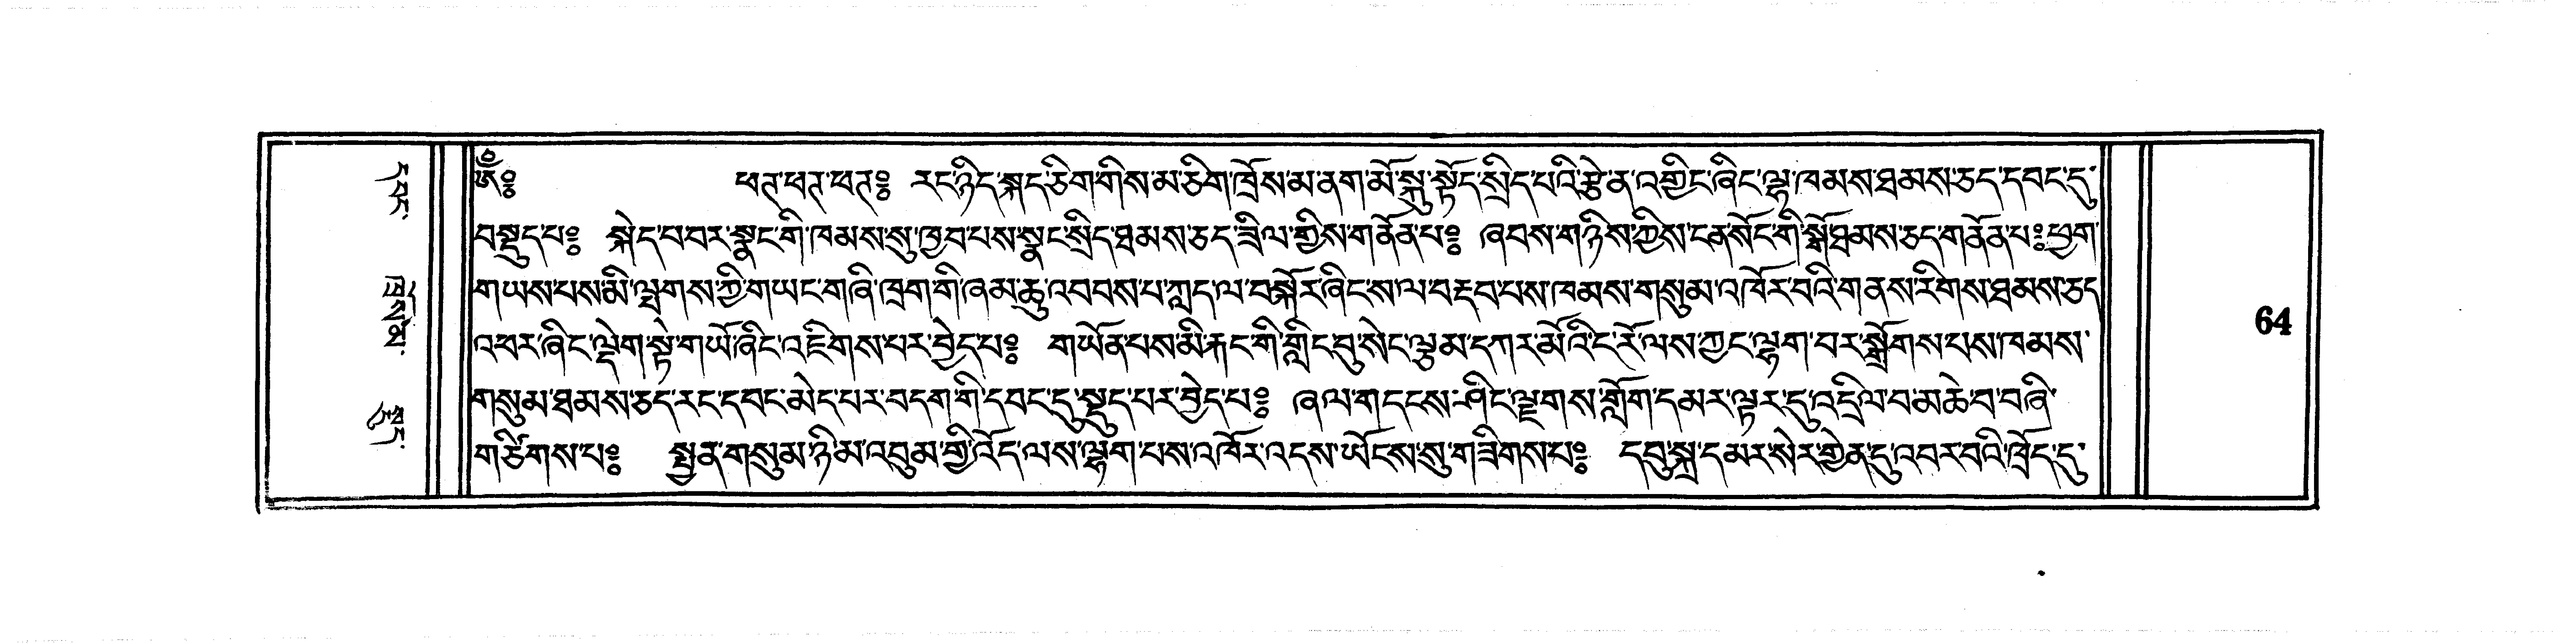 ཨོཾ༔ ཕཊ་ཕཊ་ཕཊ༔ རང་ཉིད་སྐད་ཅིག་གིས་མ་ཅིག་ཁྲོས་མ་ནག་མོ་སྐུ་སྟོད་སྲིད་པའི་རྩེ་ན་འགྱིང་ཞིང་ལྷ་ཁམས་ཐམས་ཅད་དབང་དུ་
བསྡུད་པ༔ སྐེད་པ་བར་སྣང་གི་ཁམས་སུ་ཁྱབ་པས་སྣང་སྲིད་ཐམས་ཅད་ཟིལ་གྱིས་གནོན་པ༔ ཞབས་གཉིས་ཀྱིས་ངན་སོང་གི་སྒོ་ཐམས་ཅད་གནོན་པ༔ ཕྱག་
གཡས་པས་མི་ལྤགས་ཀྱི་གཡང་གཞི་ཁྲག་གི་ཞམ་ཆུ་འབབས་པ་ཀླད་ལ་བསྐོར་ཞིང་ས་ལ་བརྡབ་པས་ཁམས་གསུམ་འཁོར་བའི་གནས་རིགས་ཐམས་ཅད
འཕར་ཞིང་ལྡེག་སྟེ་གཡོ་ཞིང་འཇིགས་པར་བྱེད་པ༔ གཡོན་པས་མི་རྐང་གི་གླིང་བུ་སེང་ལྕམ་དཀར་མོའི་ང་རོ་ལས་ཀྱང་ལྷག་པར་སྒྲོགས་པས་ཁམས་
གསུམ་ཐམས་ཅད་རང་དབང་མེད་པར་བདག་གི་དབང་དུ་སྡུད་པར་བྱེད་པ༔ ཞལ་གདངས་ཤིང་ལྗགས་གློག་དམར་ལྟར་དུ་འདྲིལ་བ་མཆེ་བ་བཞི་
གཙིགས་པ༔ སྤྱན་གསུམ་ཉི་མ་འབུམ་གྱི་འོད་ལས་ལྷག་པས་འཁོར་འདས་ཡོངས་སུ་གཟིགས་པ༔ དབུ་སྐྲ་དམར་སེར་གྱེན་དུ་འབར་བའི་ཁྲོད་དུ་
64